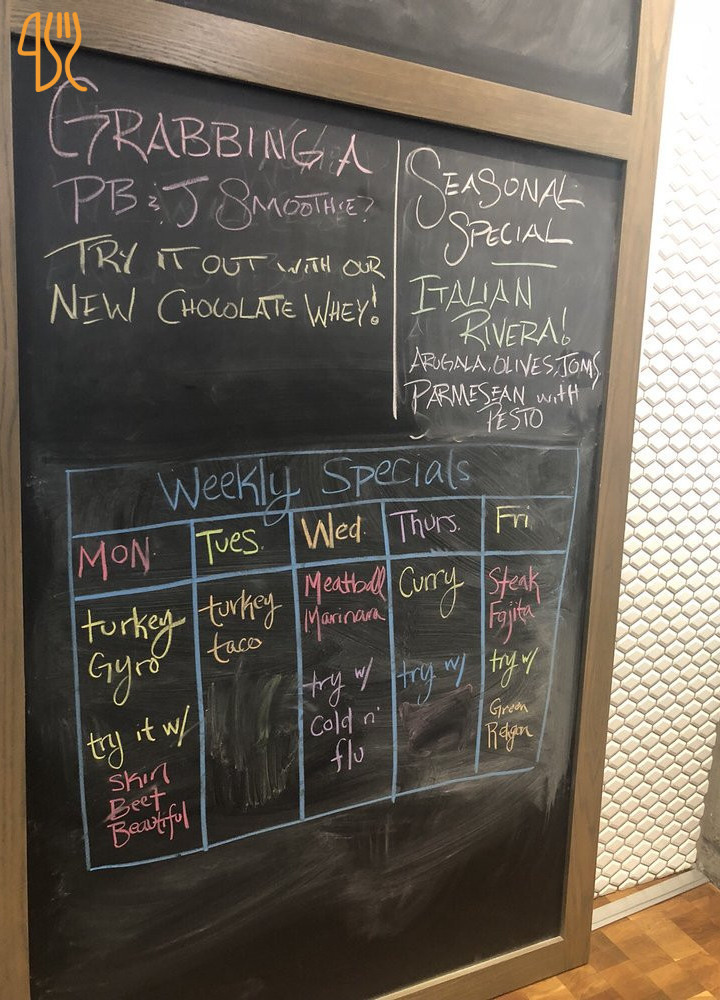 GRABBING A
PB & J SMOOTHIE?
TRY IT OUT WITH OUR
NEW CHOCOLATE WHEY!
SEASONAL
SPECIAL
ITALIAN
RIVERA!
ARUGALA, OLIVES, TOMS,
PARMESEAN with
PESTO
Weekly Specials
MON.
turkey
Gyro
try it w/
Skin
Beet
Beautiful
Tues.
turkey
taco
Wed.
Meatball
Marinara
try w/
Cold n'
flu
Thurs.
Curry
try w/
Fri.
Steak
Fajita
try w/
Green